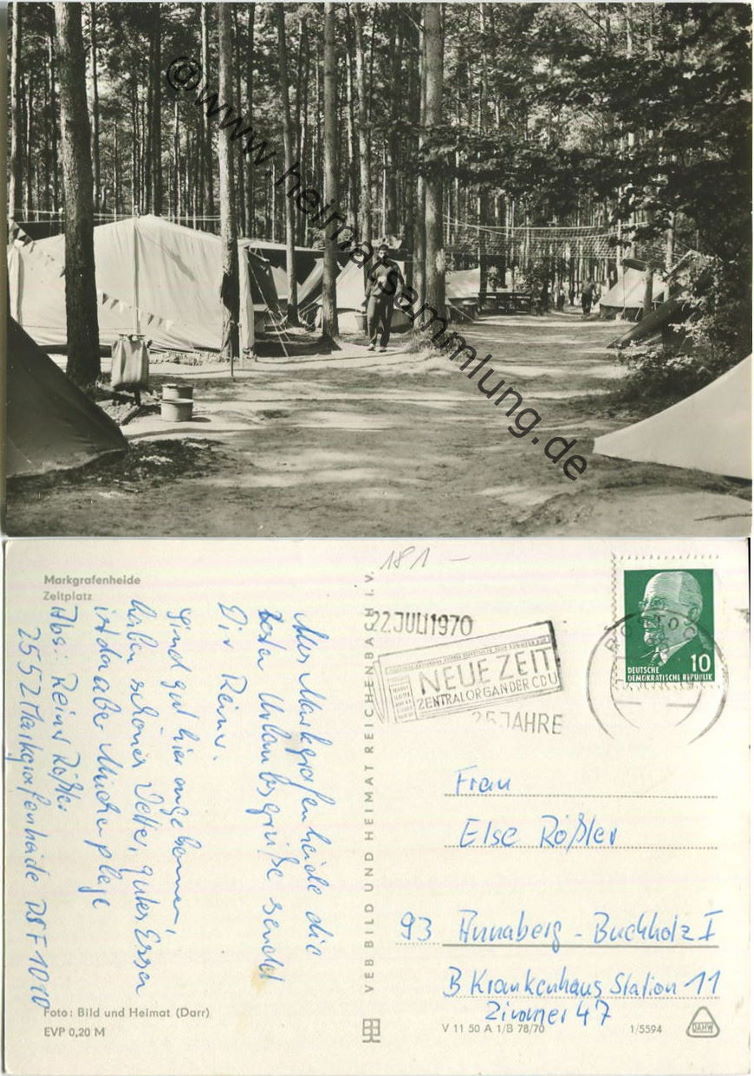 ©www.heimatsammlung.de
Markgrafenheide
Zeltplatz
181 –
22.JULI1970
NEUE ZEIT
ZENTRALORGAN DER CDU
25 JAHRE
ROSTOCK
DEUTSCHE
DEMOKRATISCHE REPUBLIK
10
Aus Markgrafenheide die
besten Urlaubsgrüße sendet
Dir Reiner.
Sind gut hier angekommen,
haben schönes Wetter, gutes Essen
ist da aber Mückenplage
Abs: Reiner Rößler
2552 Markgrafenheide PSF 1010
VEB BILD UND HEIMAT REICHENBACH I.V.
Frau
Else Rößler
93 Annaberg - Buchholz I
B Krankenhaus Station 11
Zimmer 47
Foto: Bild und Heimat (Darr)
EVP 0,20 M
V 11 50 A 1/B 78/70
1/5594
DAHW